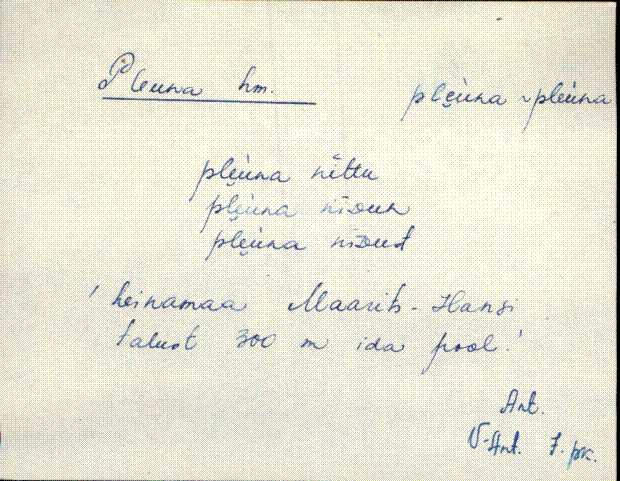 Pleuna hm. ple̮ùna ~ pleùna
ple̮ùna nĭttu
ple̮ùna nīᴅun
ple̮ùna nīᴅut
' heinamaa Maarits-Hansi
talust 300 m ida pool.'
Ant.
V-Ant. 7. pk.